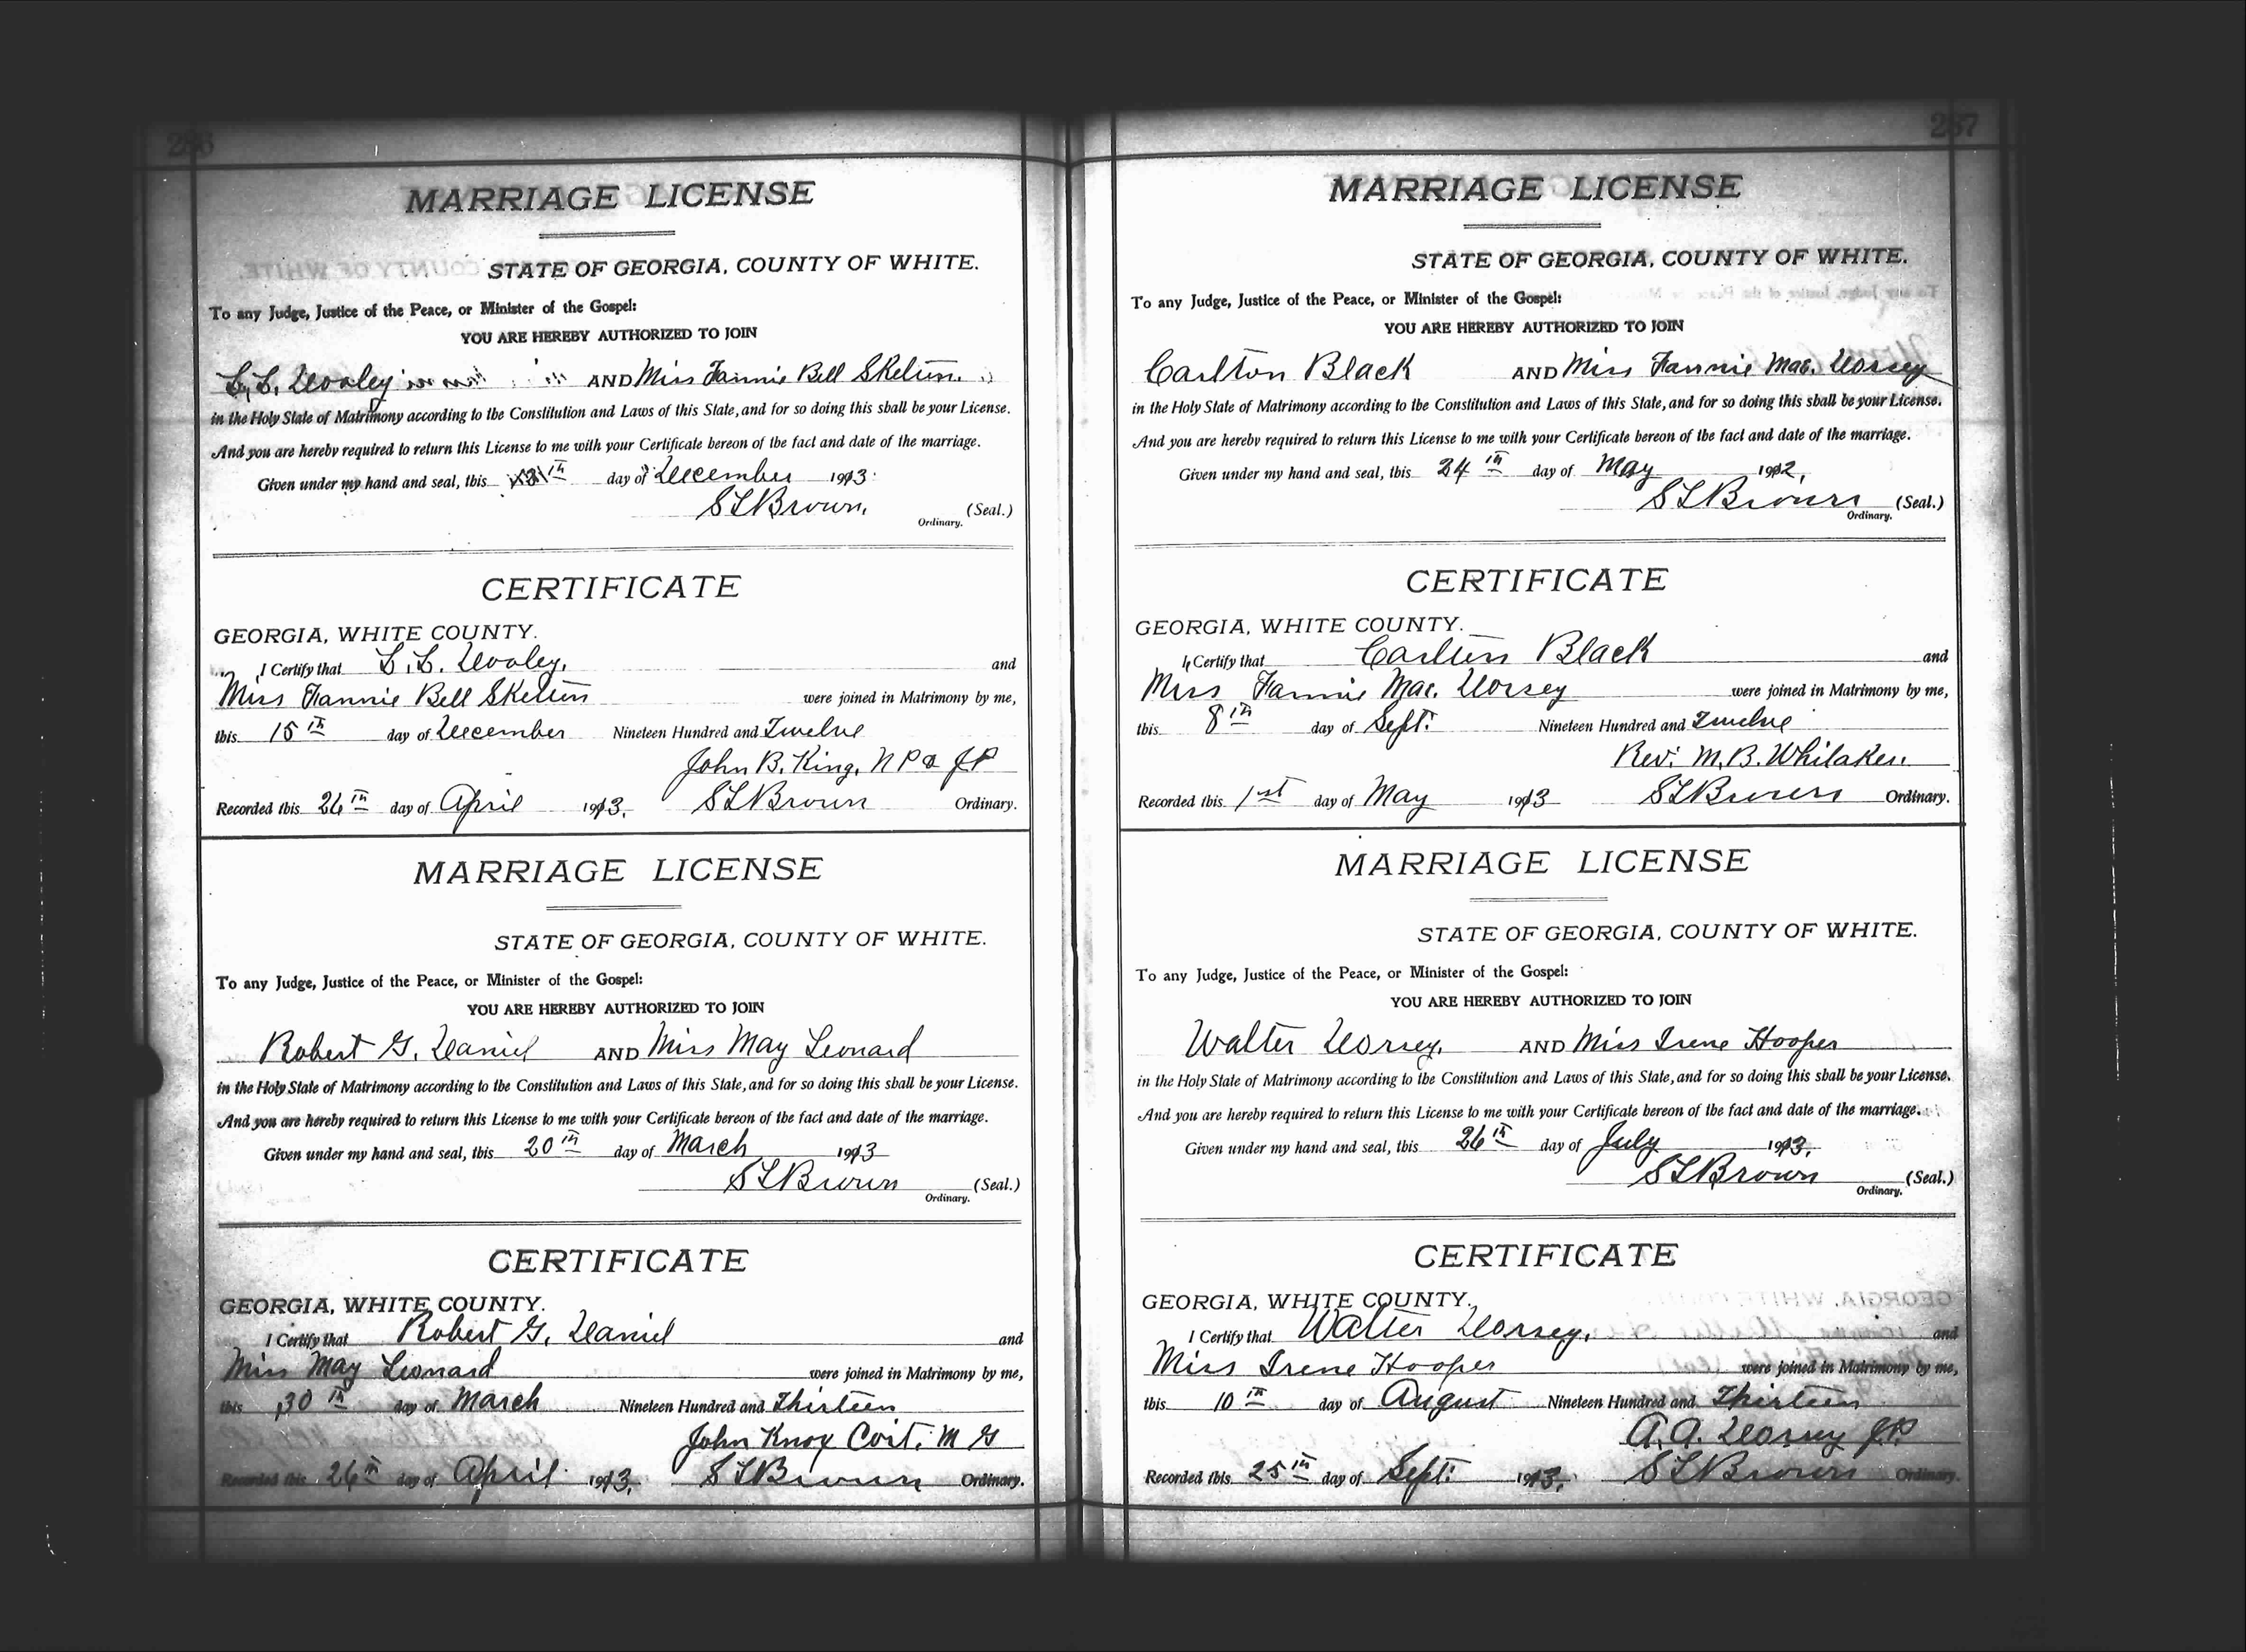 286
MARRIAGE LICENSE
STATE OF GEORGIA, COUNTY OF WHITE.
To any Judge, Justice of the Peace, or Minister of the Gospel:
YOU ARE HEREBY AUTHORIZED TO JOIN
L. L. Dooley AND Miss Fannie Bell Skelton.
in the Holy State of Matrimony according to the Constitution and Laws of this State, and for so doing this shall be your License.
And you are hereby required to return this License to me with your Certificate hereon of the fact and date of the marriage.
Given under my hand and seal, this day of December 1913.
S L Brown. (Seal.)
Ordinary.
CERTIFICATE
GEORGIA, WHITE COUNTY.
I Certify that L. L. Dooley, and
Miss Fannie Bell Skelton were joined in Matrimony by me,
this 15th day of December Nineteen Hundred and Twelve
John B. King, N P & J P
Recorded this 26th day of April 1913. S L Brown Ordinary.
MARRIAGE LICENSE
STATE OF GEORGIA, COUNTY OF WHITE.
To any Judge, Justice of the Peace, or Minister of the Gospel:
YOU ARE HEREBY AUTHORIZED TO JOIN
Robert G. Daniel AND Miss May Leonard
in the Holy State of Matrimony according to the Constitution and Laws of this State, and for so doing this shall be your License.
And you are hereby required to return this License to me with your Certificate hereon of the fact and date of the marriage.
Given under my hand and seal, this 20th day of March 1913
S L Brown (Seal.)
Ordinary.
CERTIFICATE
GEORGIA, WHITE COUNTY.
I Certify that Robert G. Daniel and
Miss May Leonard were joined in Matrimony by me,
this 30th day of March Nineteen Hundred and Thirteen
John Knox Coit. M G
Recorded this 26th day of April 1913. S L Brown Ordinary.
287
MARRIAGE LICENSE
STATE OF GEORGIA, COUNTY OF WHITE.
To any Judge, Justice of the Peace, or Minister of the Gospel:
YOU ARE HEREBY AUTHORIZED TO JOIN
Carlton Black AND Miss Fannie Mae. Dorsey
in the Holy State of Matrimony according to the Constitution and Laws of this State, and for so doing this shall be your License.
And you are hereby required to return this License to me with your Certificate hereon of the fact and date of the marriage.
Given under my hand and seal, this 24th day of May 1912,
S L Brown (Seal.)
Ordinary.
CERTIFICATE
GEORGIA, WHITE COUNTY.
I Certify that Carlton Black and
Miss Fannie Mae. Dorsey were joined in Matrimony by me,
this 8th day of Sept. Nineteen Hundred and Twelve
Rev. M. B. Whitaker.
Recorded this 1st day of May 1913 S L Brown Ordinary.
MARRIAGE LICENSE
STATE OF GEORGIA, COUNTY OF WHITE.
To any Judge, Justice of the Peace, or Minister of the Gospel:
YOU ARE HEREBY AUTHORIZED TO JOIN
Walter Dorsey, AND Miss Irene Hooper
in the Holy State of Matrimony according to the Constitution and Laws of this State, and for so doing this shall be your License.
And you are hereby required to return this License to me with your Certificate hereon of the fact and date of the marriage.
Given under my hand and seal, this 26th day of July 1913.
S L Brown (Seal.)
Ordinary.
CERTIFICATE
GEORGIA, WHITE COUNTY.
I Certify that Walter Dorsey, and
Miss Irene Hooper were joined in Matrimony by me,
this 10th day of August Nineteen Hundred and Thirteen
A. A. Dorsey J P
Recorded this 25th day of Sept. 1913. S L Brown Ordinary.